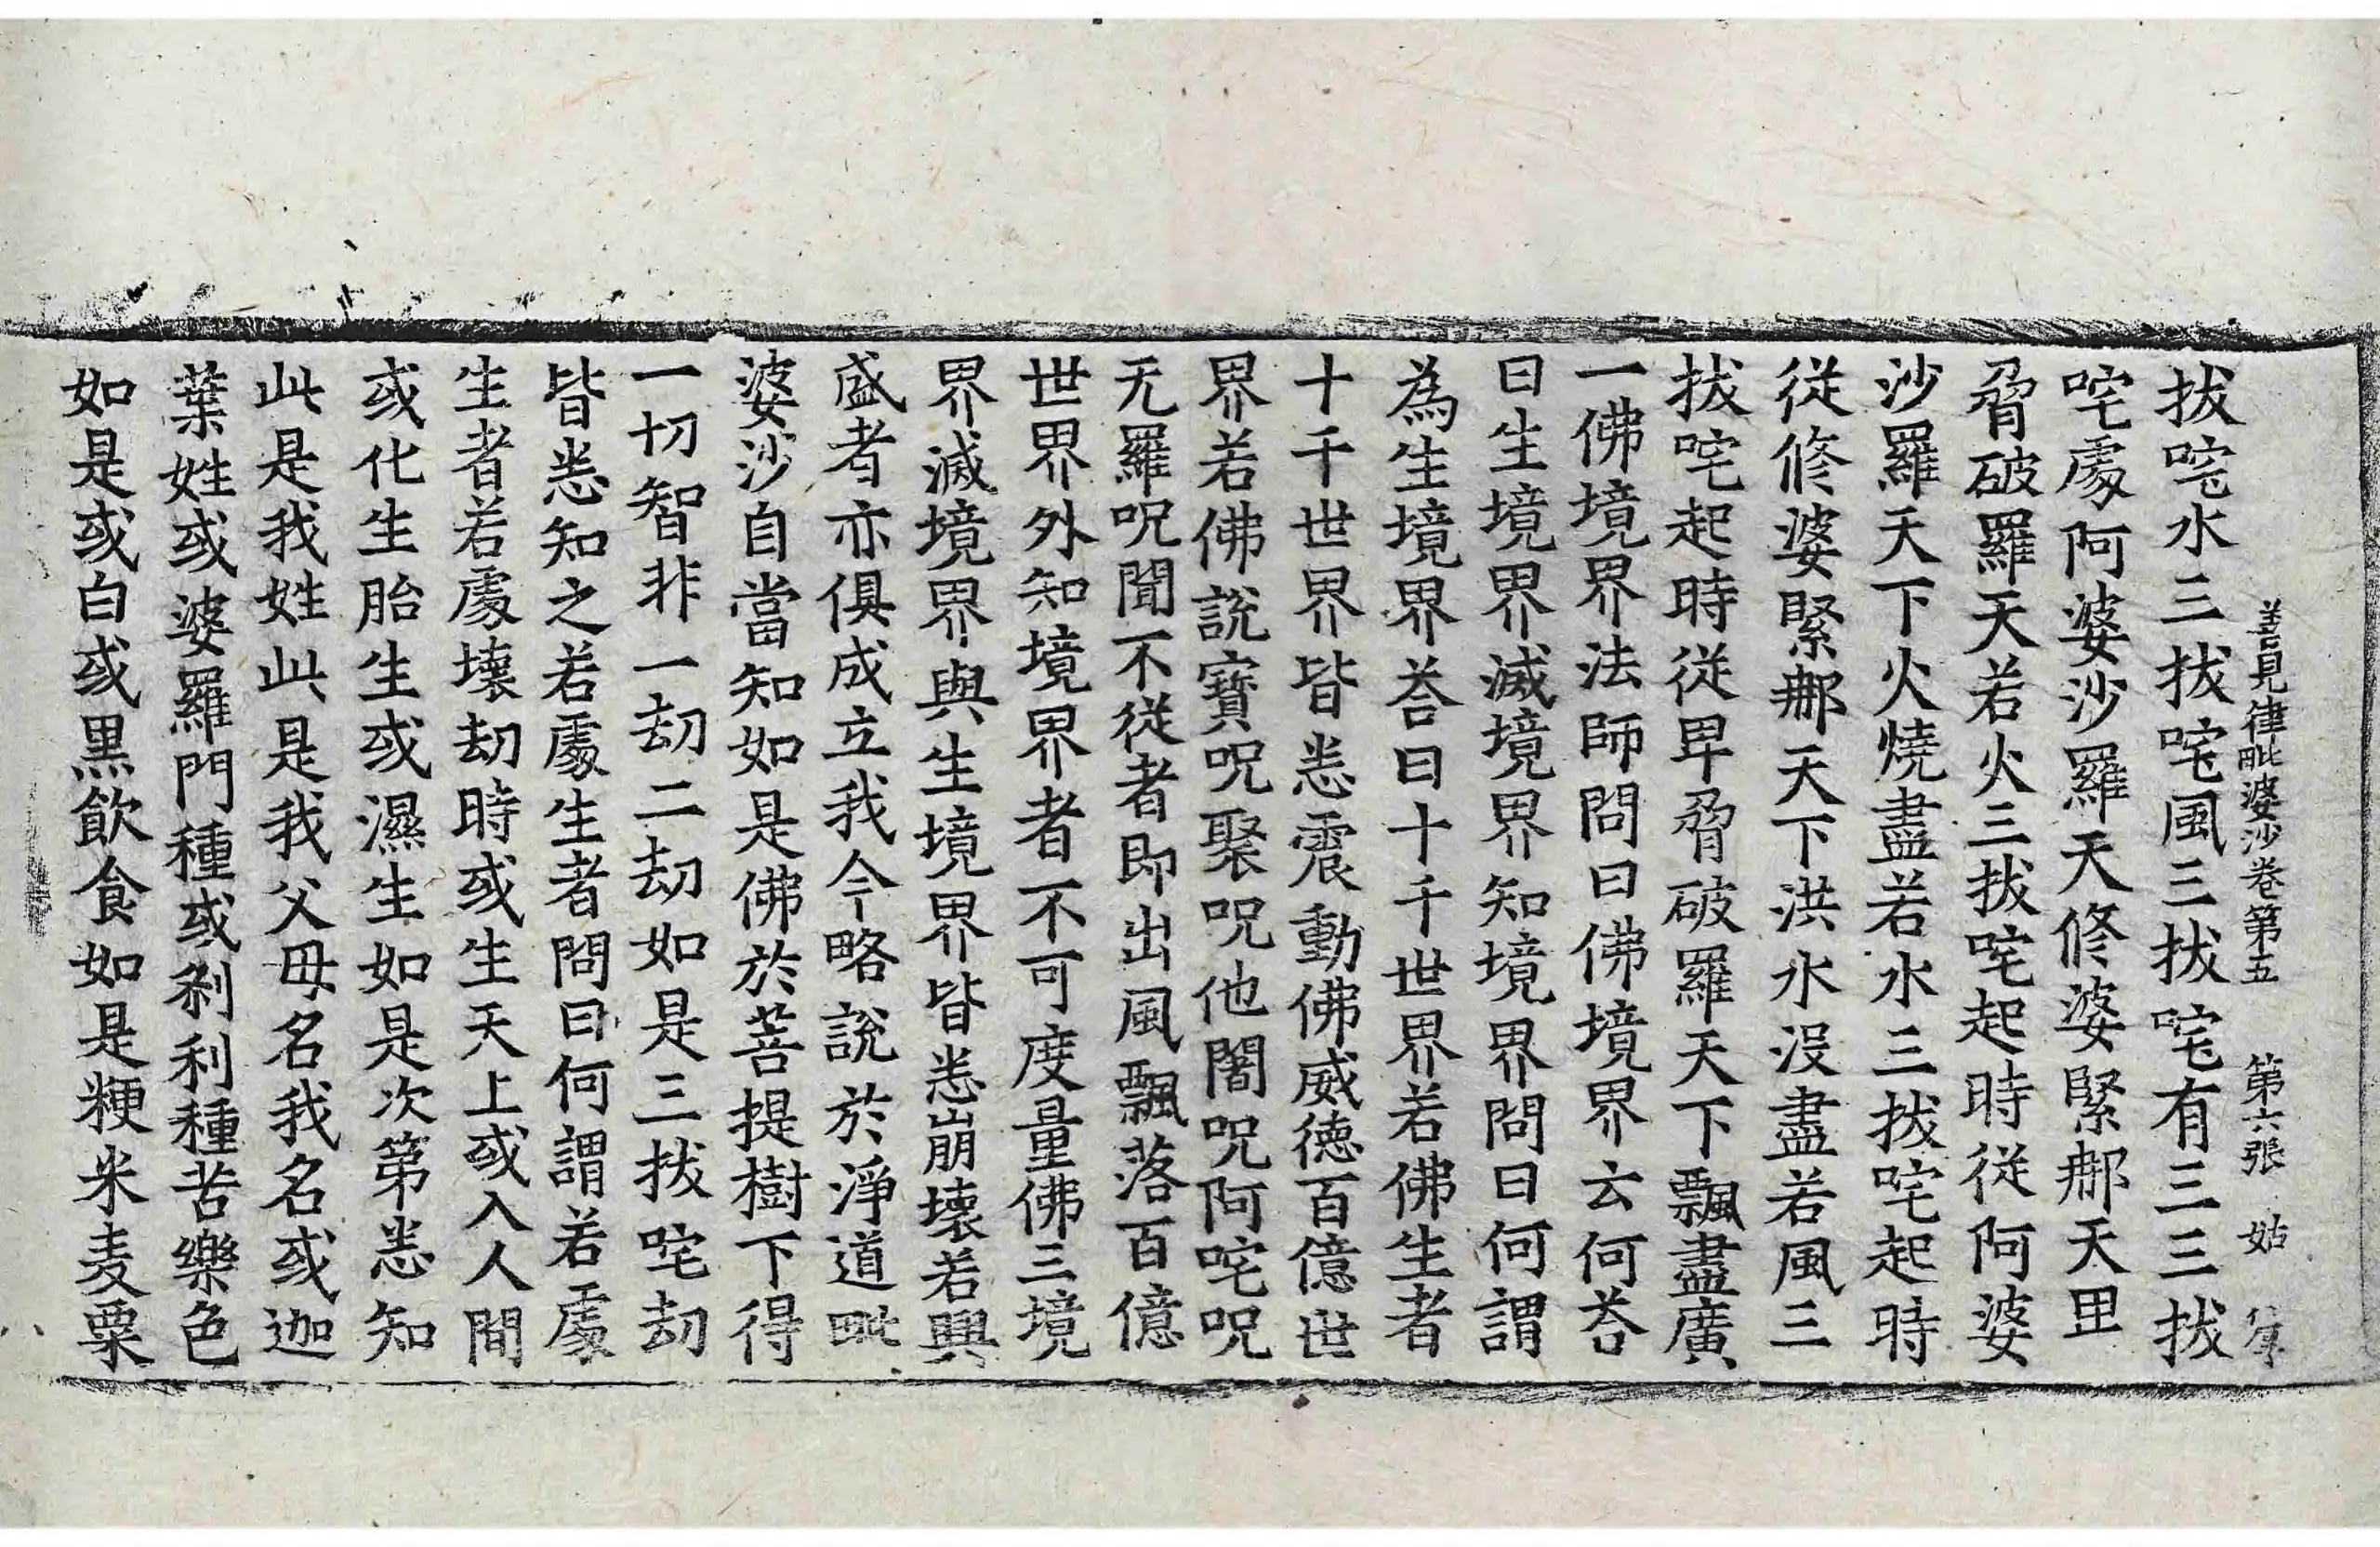 善見律毗婆沙卷第五 第六張 姑
拔咤水三拔咤風三拔咤有三三拔
咤處阿婆沙羅天修婆緊那天里
脅破羅天若火三拔咤起時從阿婆
沙羅天下火燒盡若水三拔咤起時
從修婆緊那天下洪水沒盡若風三
拔咤起時從卑脅破羅天下飄盡廣
一佛境界法師問曰佛境界云何荅
曰生境界滅境界知境界問曰何謂
為生境界荅曰十千世界若佛生者
十千世界皆悉震動佛威徳百億世
界若佛說寶呪聚呪他闍呪阿咤呪
无羅呪聞不從者即出風飄落百億
世界外知境界者不可度量佛三境
界滅境界與生境界皆悉崩壞若興
盛者亦俱成立我今略說於淨道毗
婆沙自當知如是佛於菩提樹下得
一切智非一劫二劫如是三拔咤劫
皆悉知之若處生者問曰何謂若處
生者若處壞劫時或生天上或入人間
或化生胎生或濕生如是次第悉知
此是我姓此是我父母名我名或迦
葉姓或婆羅門種或剎利種苦樂色
如是或白或黑飲食如是粳米麦粟